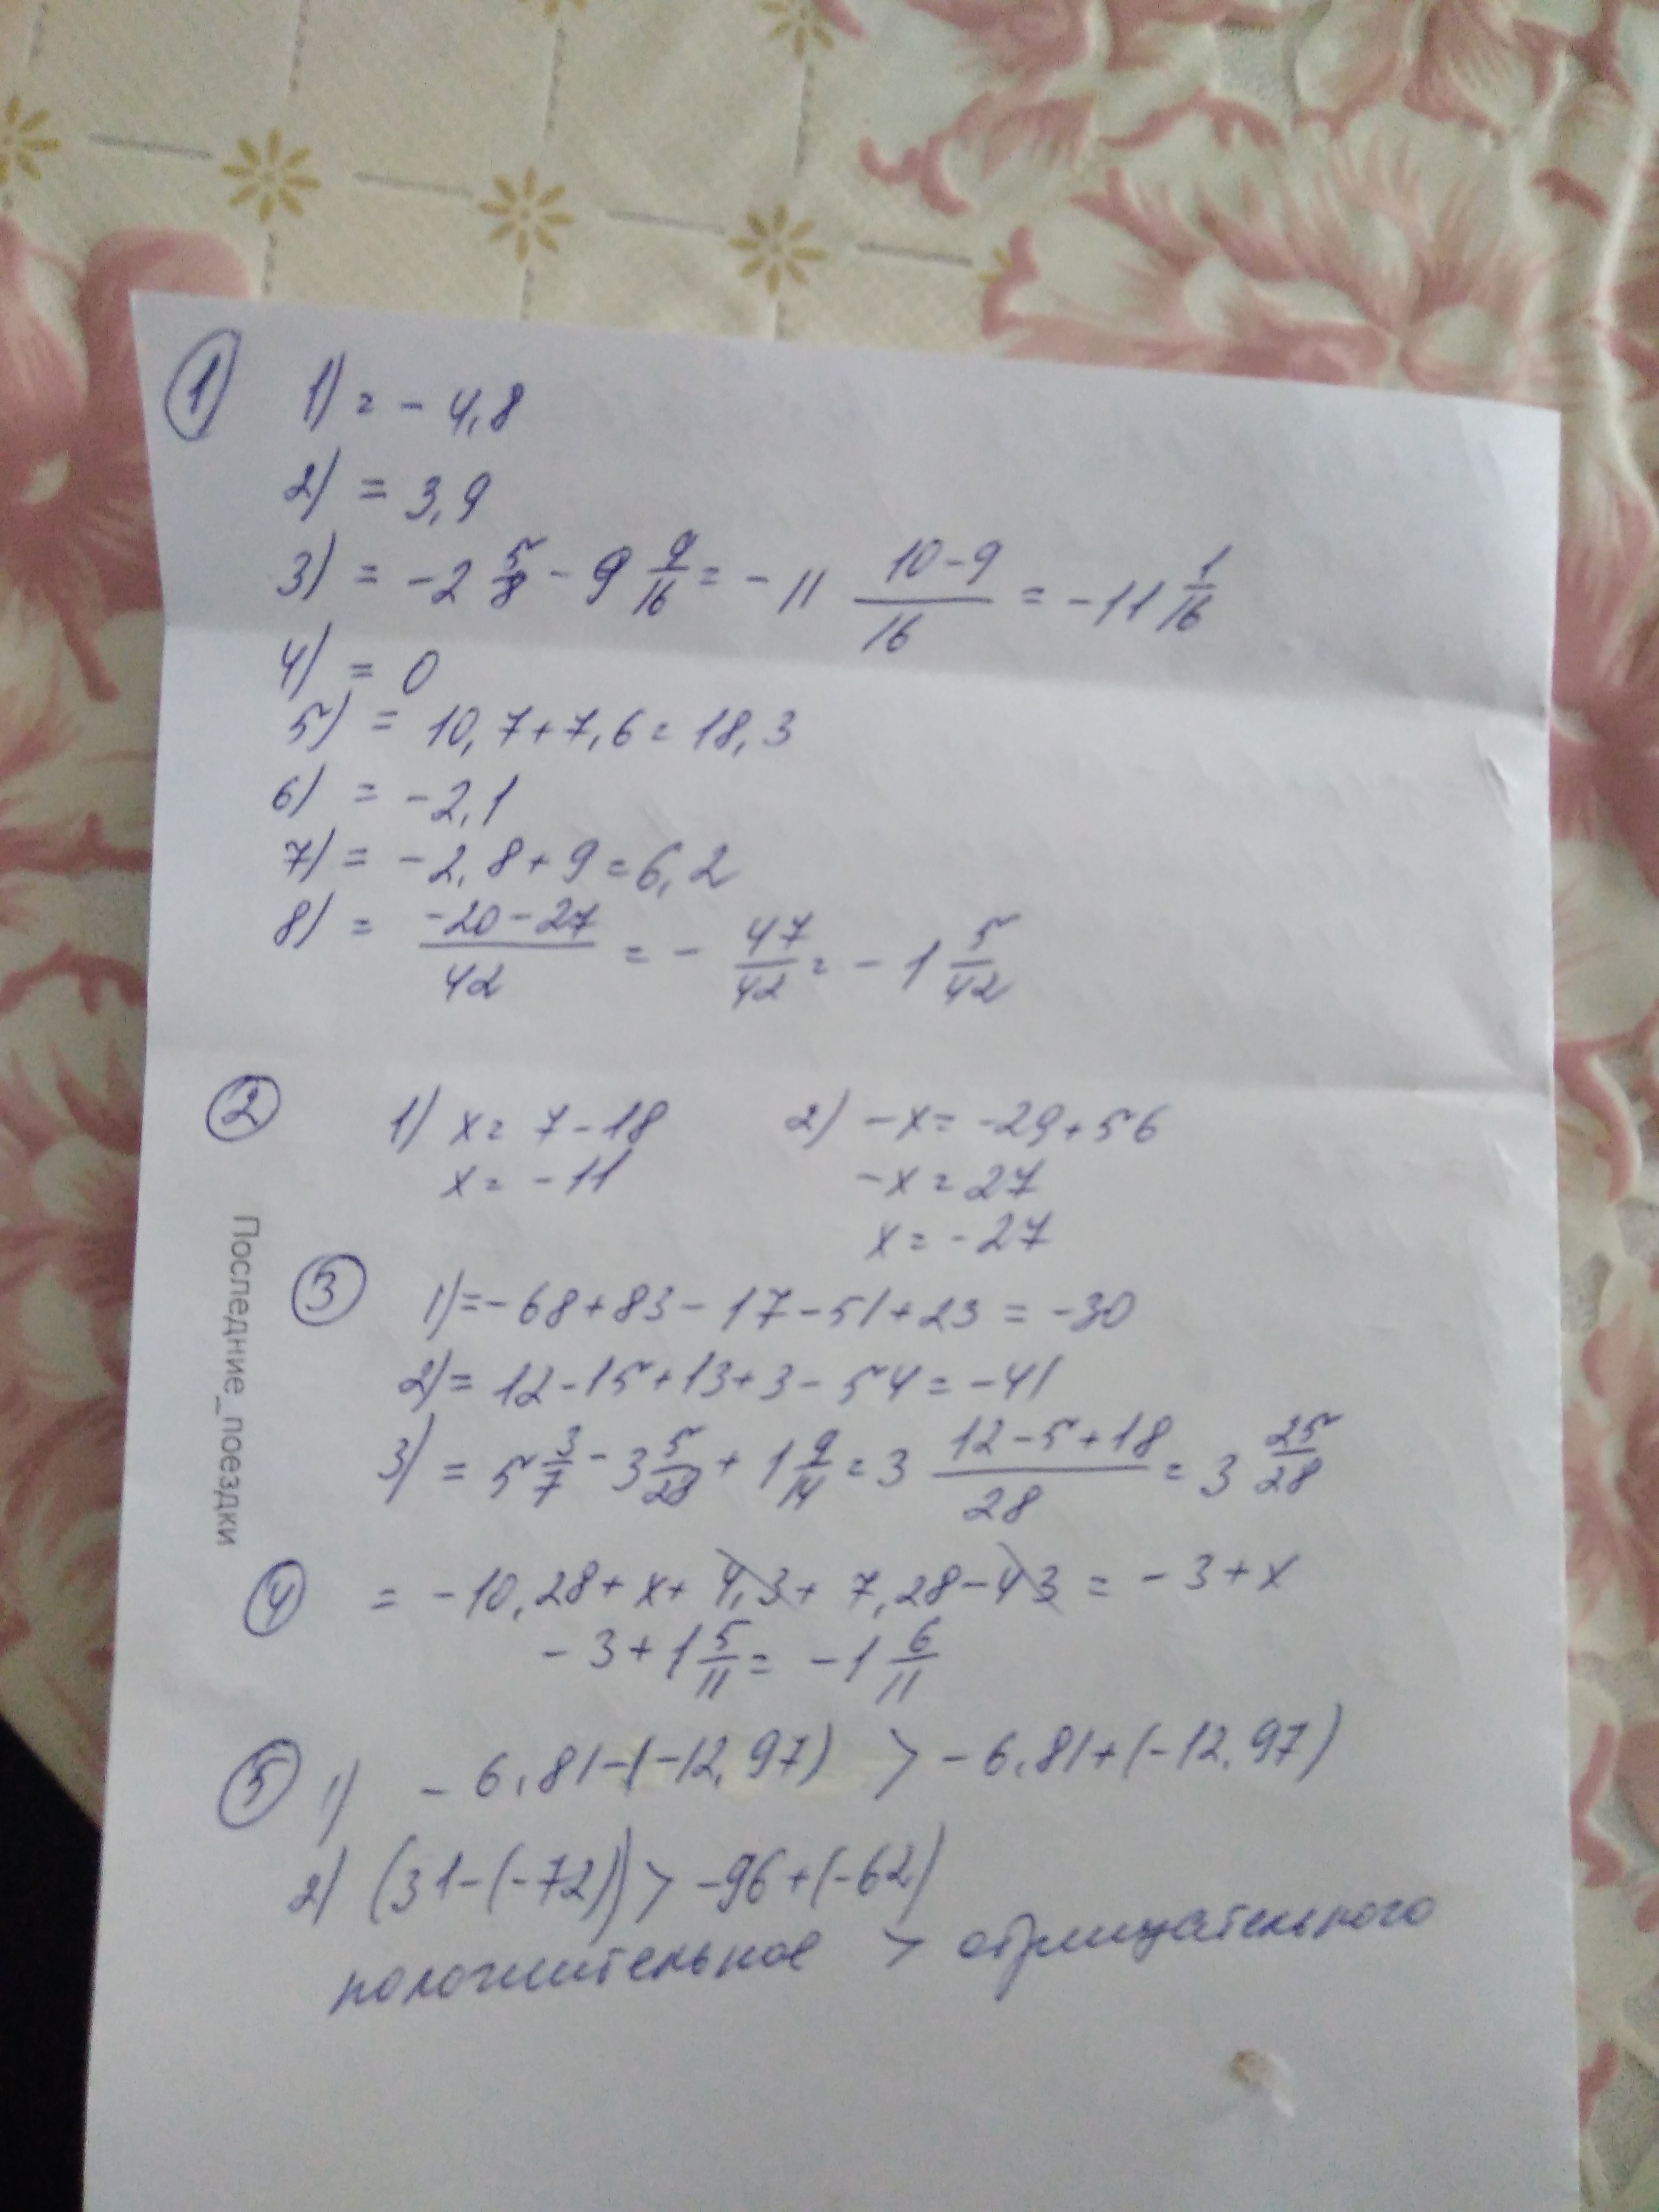 ① 1) = - 4,8
2) = 3,9
3) = -2 5/8 - 9 9/16 = - 11 (10-9)/16 = -11 1/16
4) = 0
5) = 10,7+7,6 = 18,3
6) = -2,1
7) = -2,8+9 = 6,2
8) = (-20-27)/42 = - 47/42 = - 1 5/42
② 1) x = 7-18 2) -x = -29+56
x = -11 -x = 27
x = -27
Последние_поездки
③ 1) = -68+83-17-51+23 = -30
2) = 12-15+13+3-54 = -41
3) = 5 3/7 - 3 5/28 + 1 9/14 = 3 (12-5+18)/28 = 3 25/28
④ = -10,28+x+4,3+7,28-43 = -3+x
-3+1 5/11 = -1 6/11
⑤ 1) -6,81-(-12,97) > -6,81+(-12,97)
2) (31-(-72)) > -96+(-62)
положительное > отрицательного